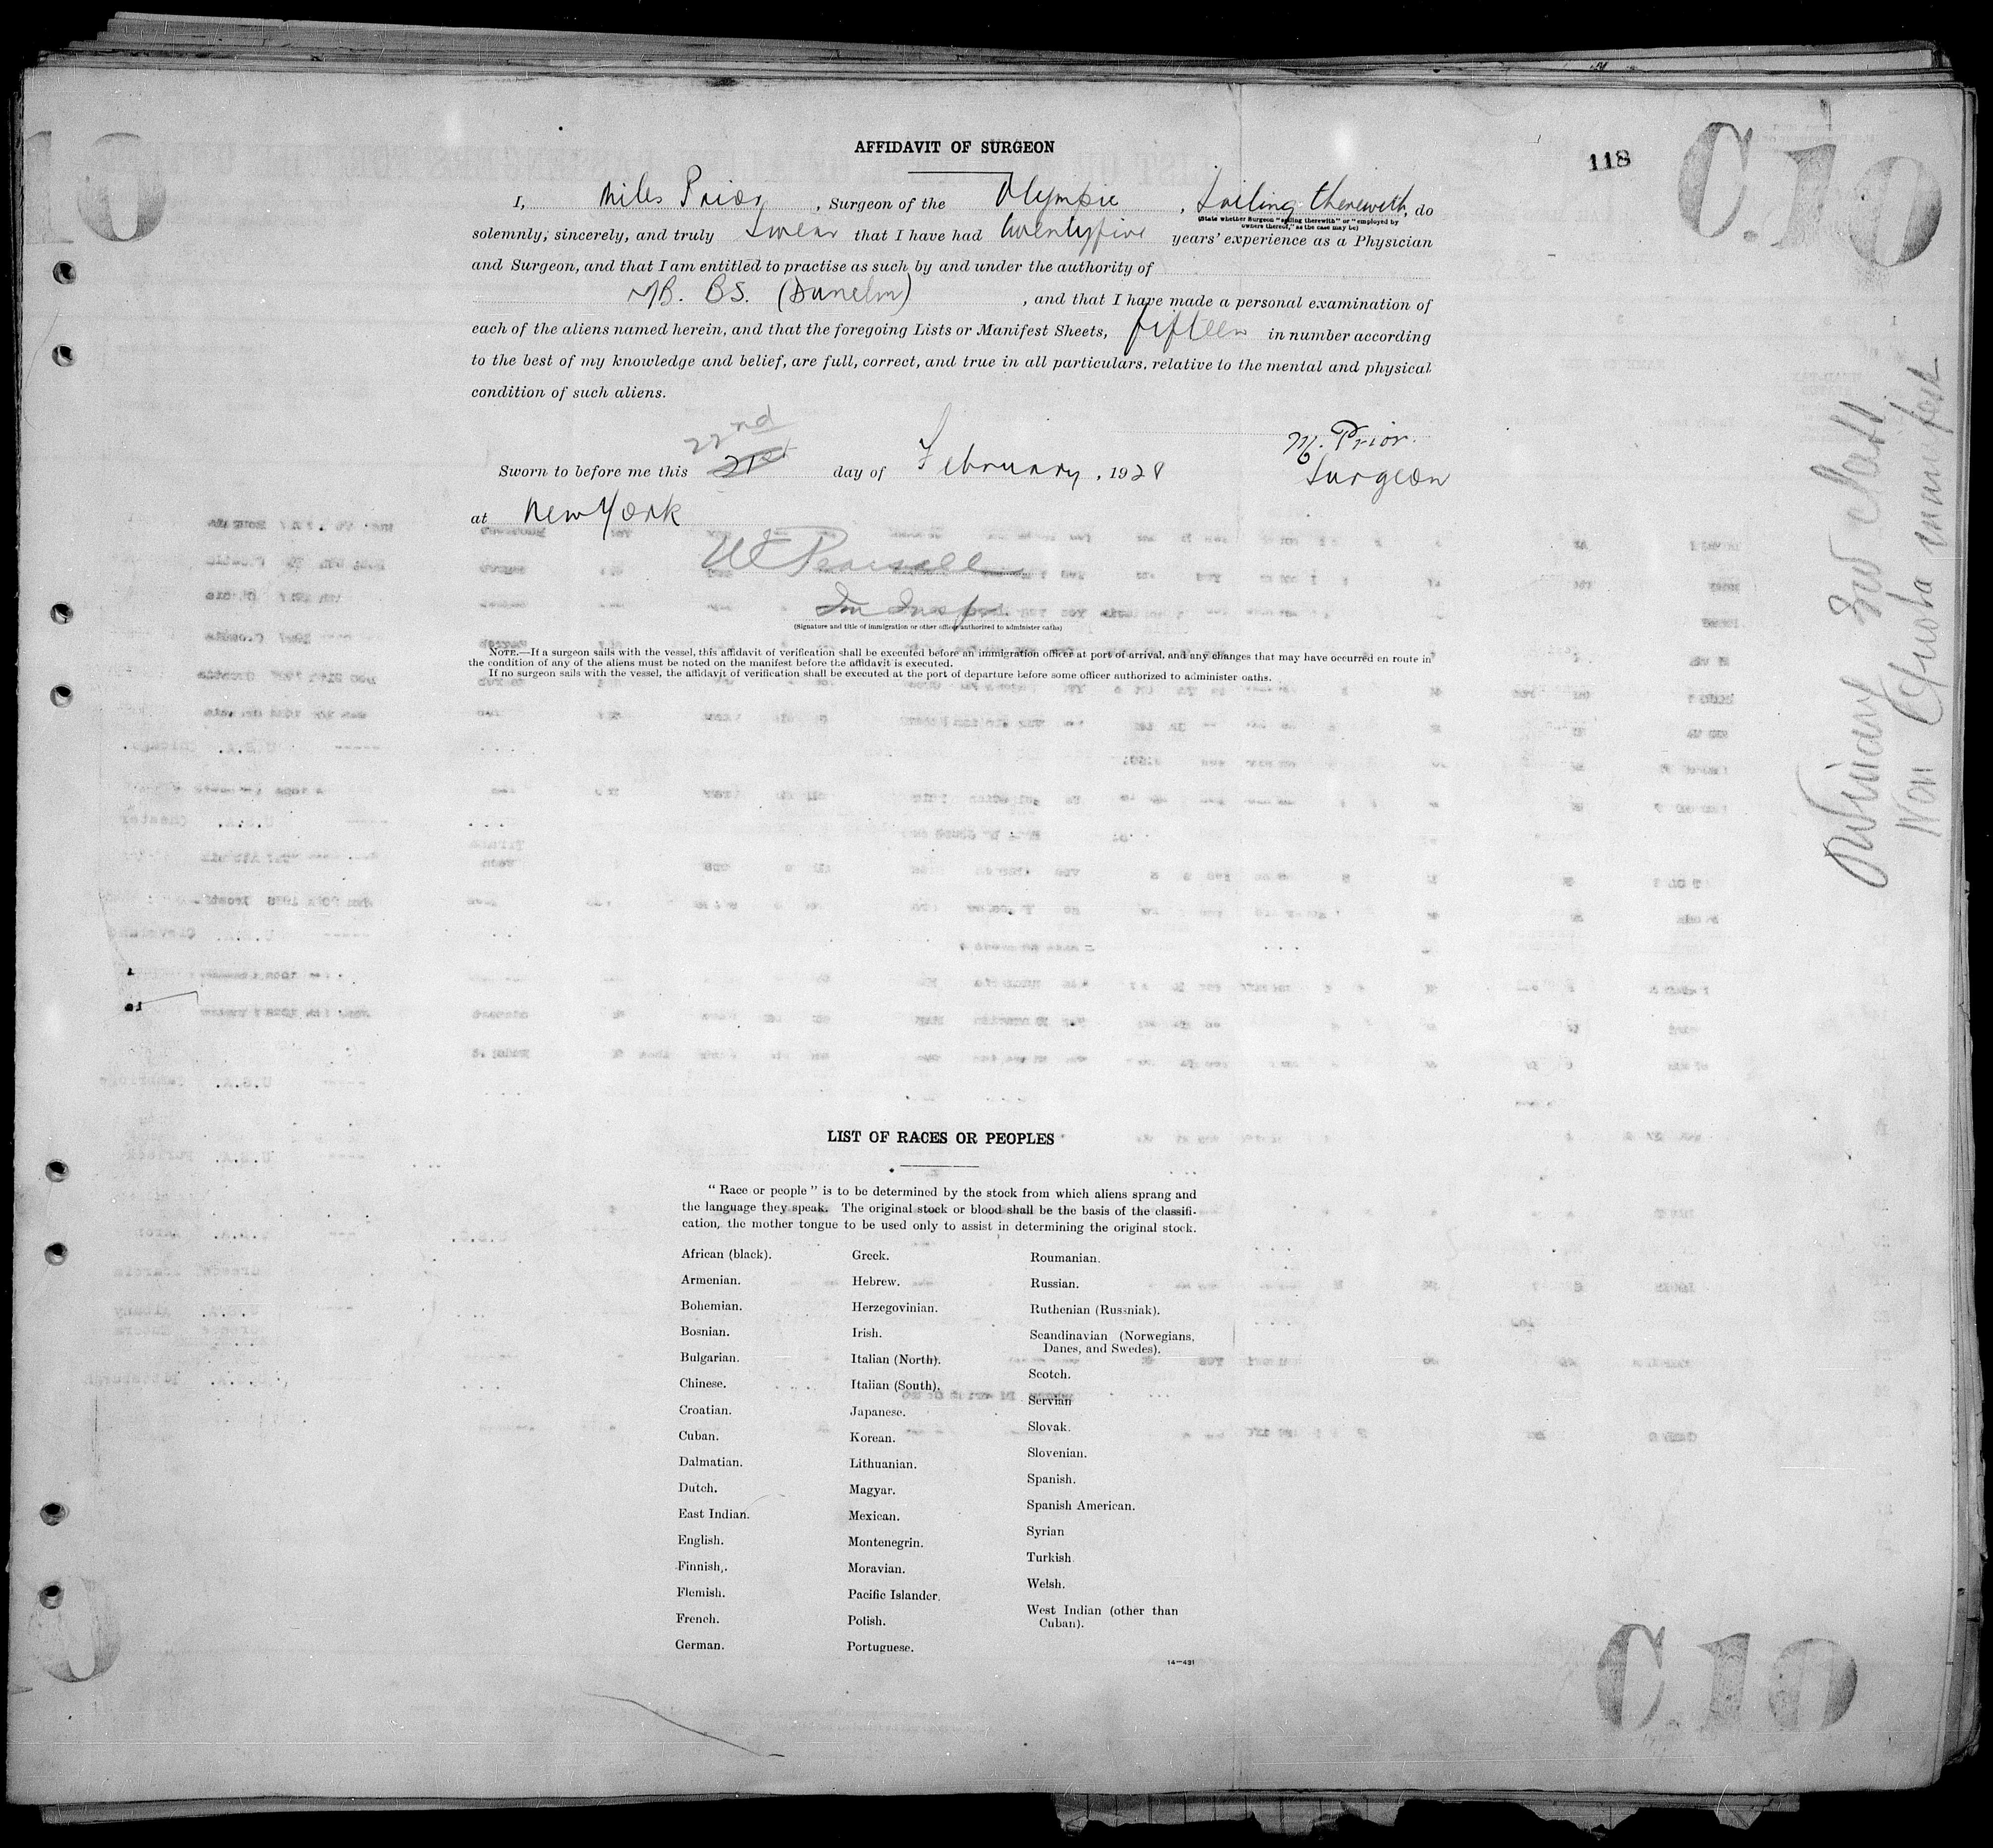 C.10
118
AFFIDAVIT OF SURGEON
I, Miles Prior, Surgeon of the Olympic, Sailing therewith, do
(State whether Surgeon "sailing therewith" or "employed by
owners thereof," as the case may be)
solemnly, sincerely, and truly Swear that I have had twentyfive years' experience as a Physician
and Surgeon, and that I am entitled to practise as such by and under the authority of
MB. BS. (Dunelm), and that I have made a personal examination of
each of the aliens named herein, and that the foregoing Lists or Manifest Sheets, fifteen in number according
to the best of my knowledge and belief, are full, correct, and true in all particulars, relative to the mental and physical
condition of such aliens.
M. Prior.
Surgeon
22nd
Sworn to before me this 21st day of February, 1928
at New York
W Pearsall
Im Insp.
(Signature and title of immigration or other officer authorized to administer oaths)
NOTE.—If a surgeon sails with the vessel, this affidavit of verification shall be executed before an immigration officer at port of arrival, and any changes that may have occurred en route in
the condition of any of the aliens must be noted on the manifest before the affidavit is executed.
If no surgeon sails with the vessel, the affidavit of verification shall be executed at the port of departure before some officer authorized to administer oaths.
3rd Class
Non Quota
LIST OF RACES OR PEOPLES
"Race or people" is to be determined by the stock from which aliens sprang and
the language they speak. The original stock or blood shall be the basis of the classifi-
cation, the mother tongue to be used only to assist in determining the original stock.
African (black).
Armenian.
Bohemian.
Bosnian.
Bulgarian.
Chinese.
Croatian.
Cuban.
Dalmatian.
Dutch.
East Indian.
English.
Finnish.
Flemish.
French.
German.
Greek.
Hebrew.
Herzegovinian.
Irish.
Italian (North).
Italian (South).
Japanese.
Korean.
Lithuanian.
Magyar.
Mexican.
Montenegrin.
Moravian.
Pacific Islander.
Polish.
Portuguese.
Roumanian.
Russian.
Ruthenian (Russniak).
Scandinavian (Norwegians,
Danes, and Swedes).
Scotch.
Servian
Slovak.
Slovenian.
Spanish.
Spanish American.
Syrian
Turkish
Welsh.
West Indian (other than
Cuban).
14—431
C.10